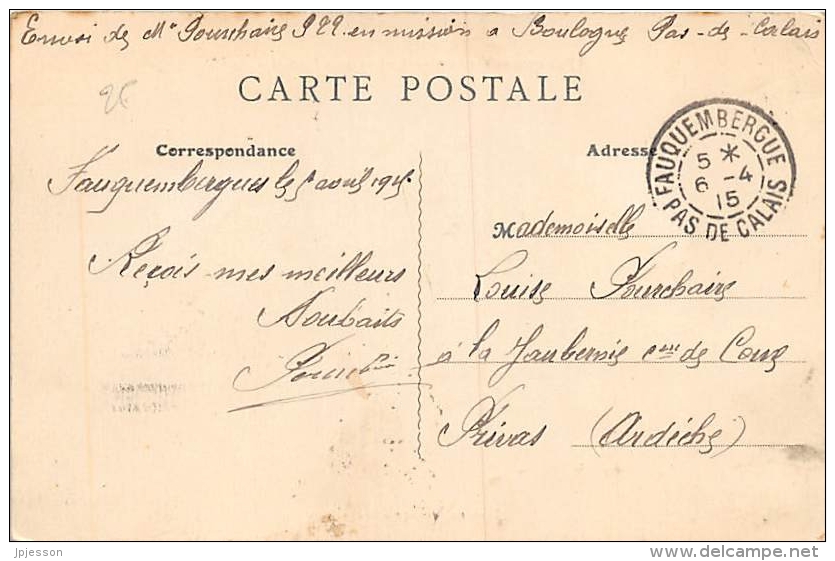 Envoi de Mr Pourchaire P22. en mission a Boulogne Pas-de-Calais
CARTE POSTALE
26
Correspondance
Adresse
FAUQUEMBERGUE
5 *
6 -4
15
PAS DE CALAIS
Fauquembergues le 5 avril 1915
Mademoiselle
Reçois mes meilleurs
Souhaits
Louise Pourchaire
à la Jaubernie cne de Coux
Privas (Ardèche)
jpjesson
www.delcampe.net